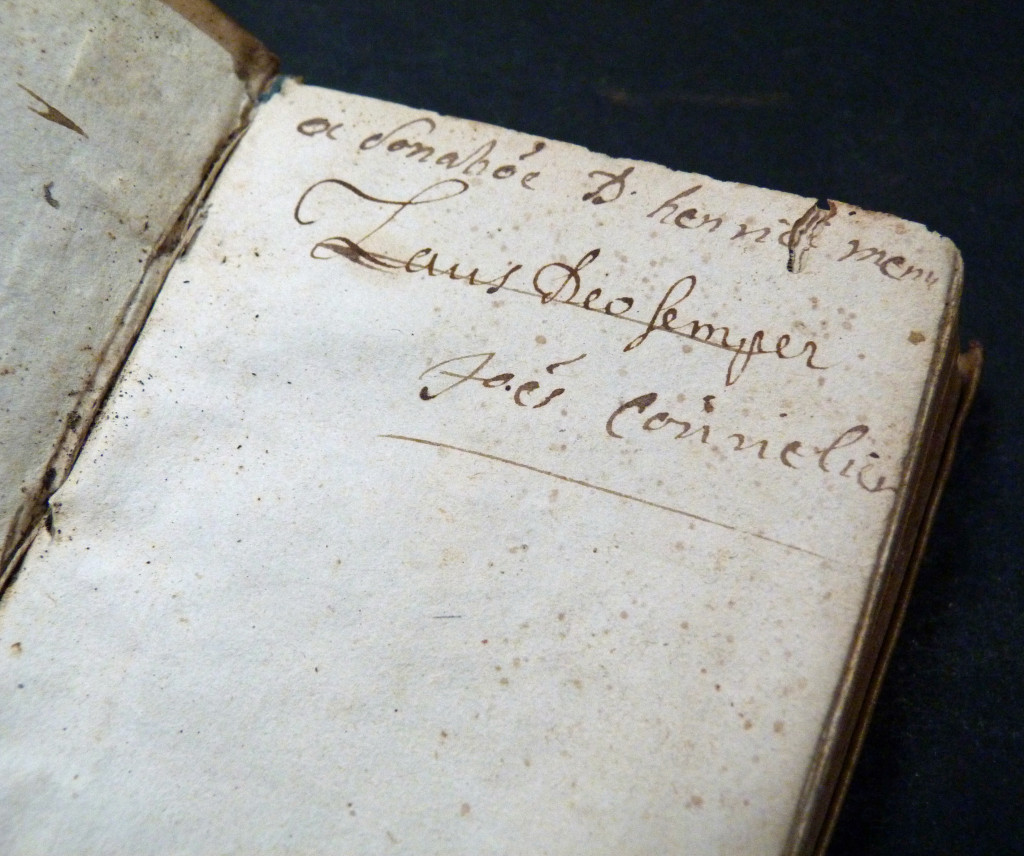 a donatióe D. henrici menu
Laus Deo semper
Joés Cornnelius